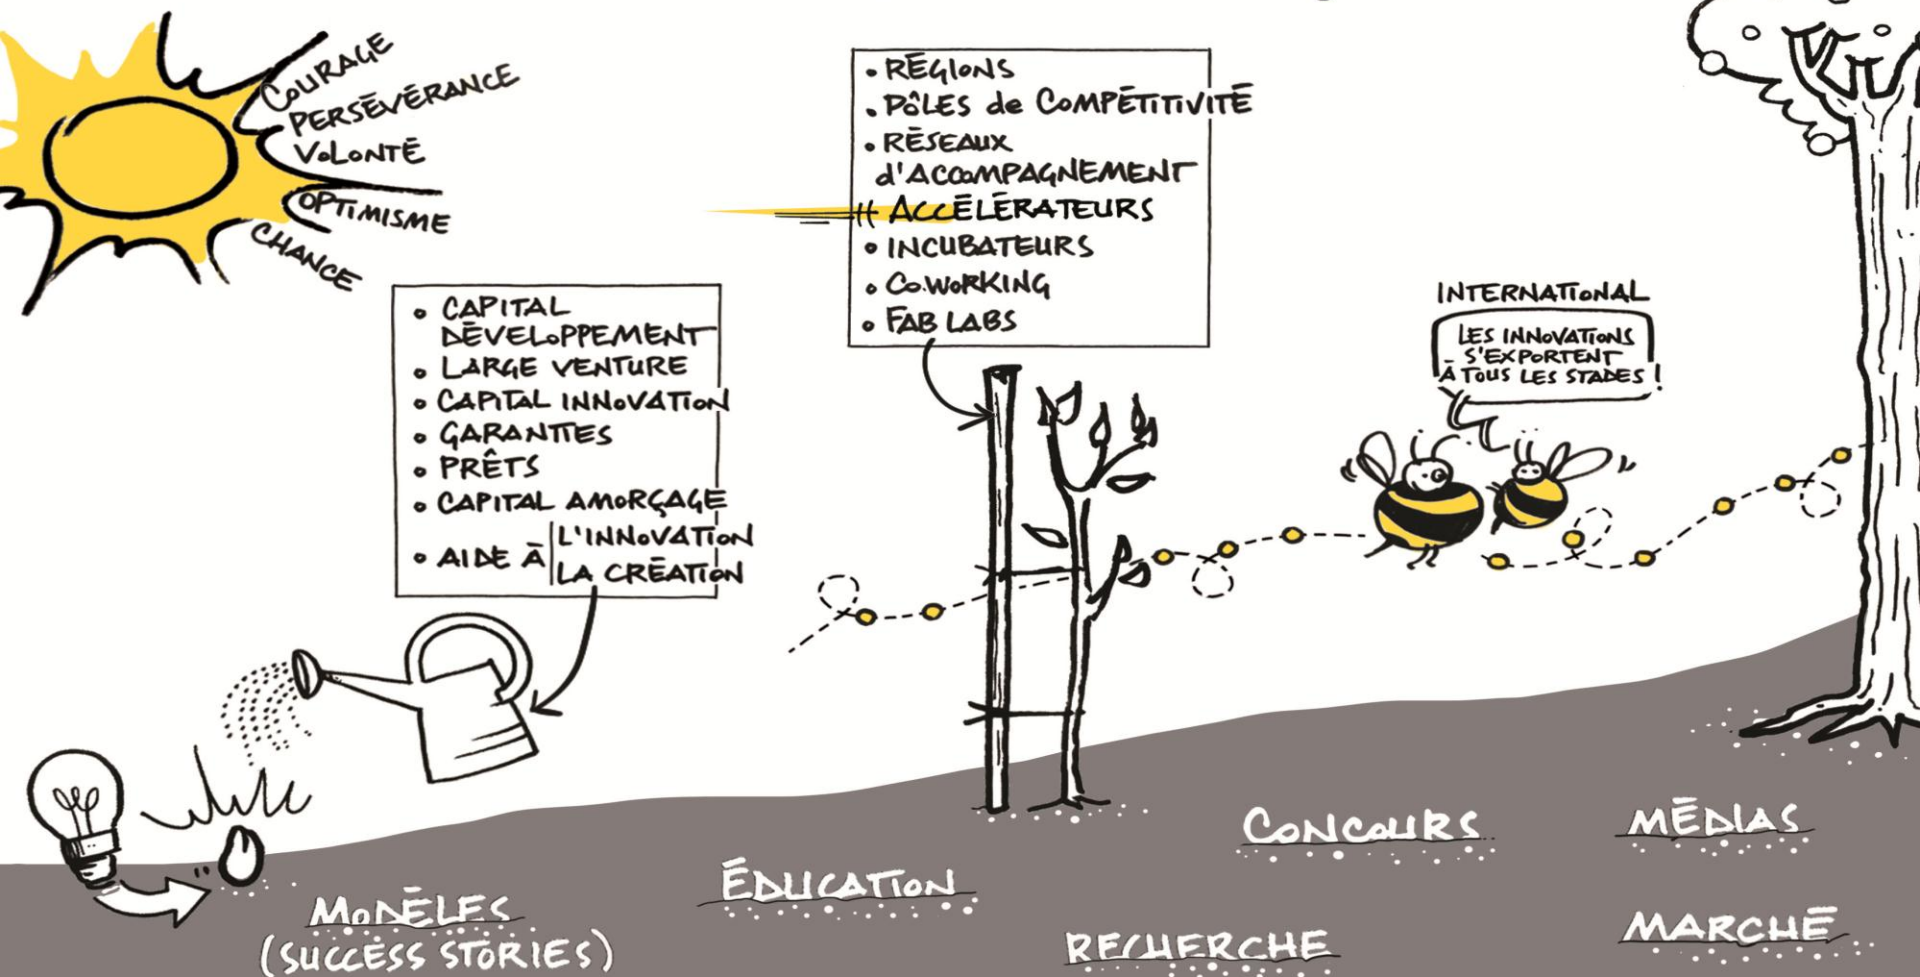 COURAGE
PERSÉVÉRANCE
VOLONTÉ
OPTIMISME
CHANCE
• CAPITAL
DÉVELOPPEMENT
• LARGE VENTURE
• CAPITAL INNOVATION
• GARANTIES
• PRÊTS
• CAPITAL AMORÇAGE
• AIDE À L'INNOVATION
LA CRÉATION
• RÉGIONS
• PÔLES de COMPÉTITIVITÉ
• RÉSEAUX
d'ACCOMPAGNEMENT
ACCÉLÉRATEURS
• INCUBATEURS
• CO.WORKING
• FAB LABS
INTERNATIONAL
LES INNOVATIONS
S'EXPORTENT
À TOUS LES STADES !
MODÈLES
(SUCCESS STORIES)
ÉDUCATION
RECHERCHE
CONCOURS
MÉDIAS
MARCHÉ